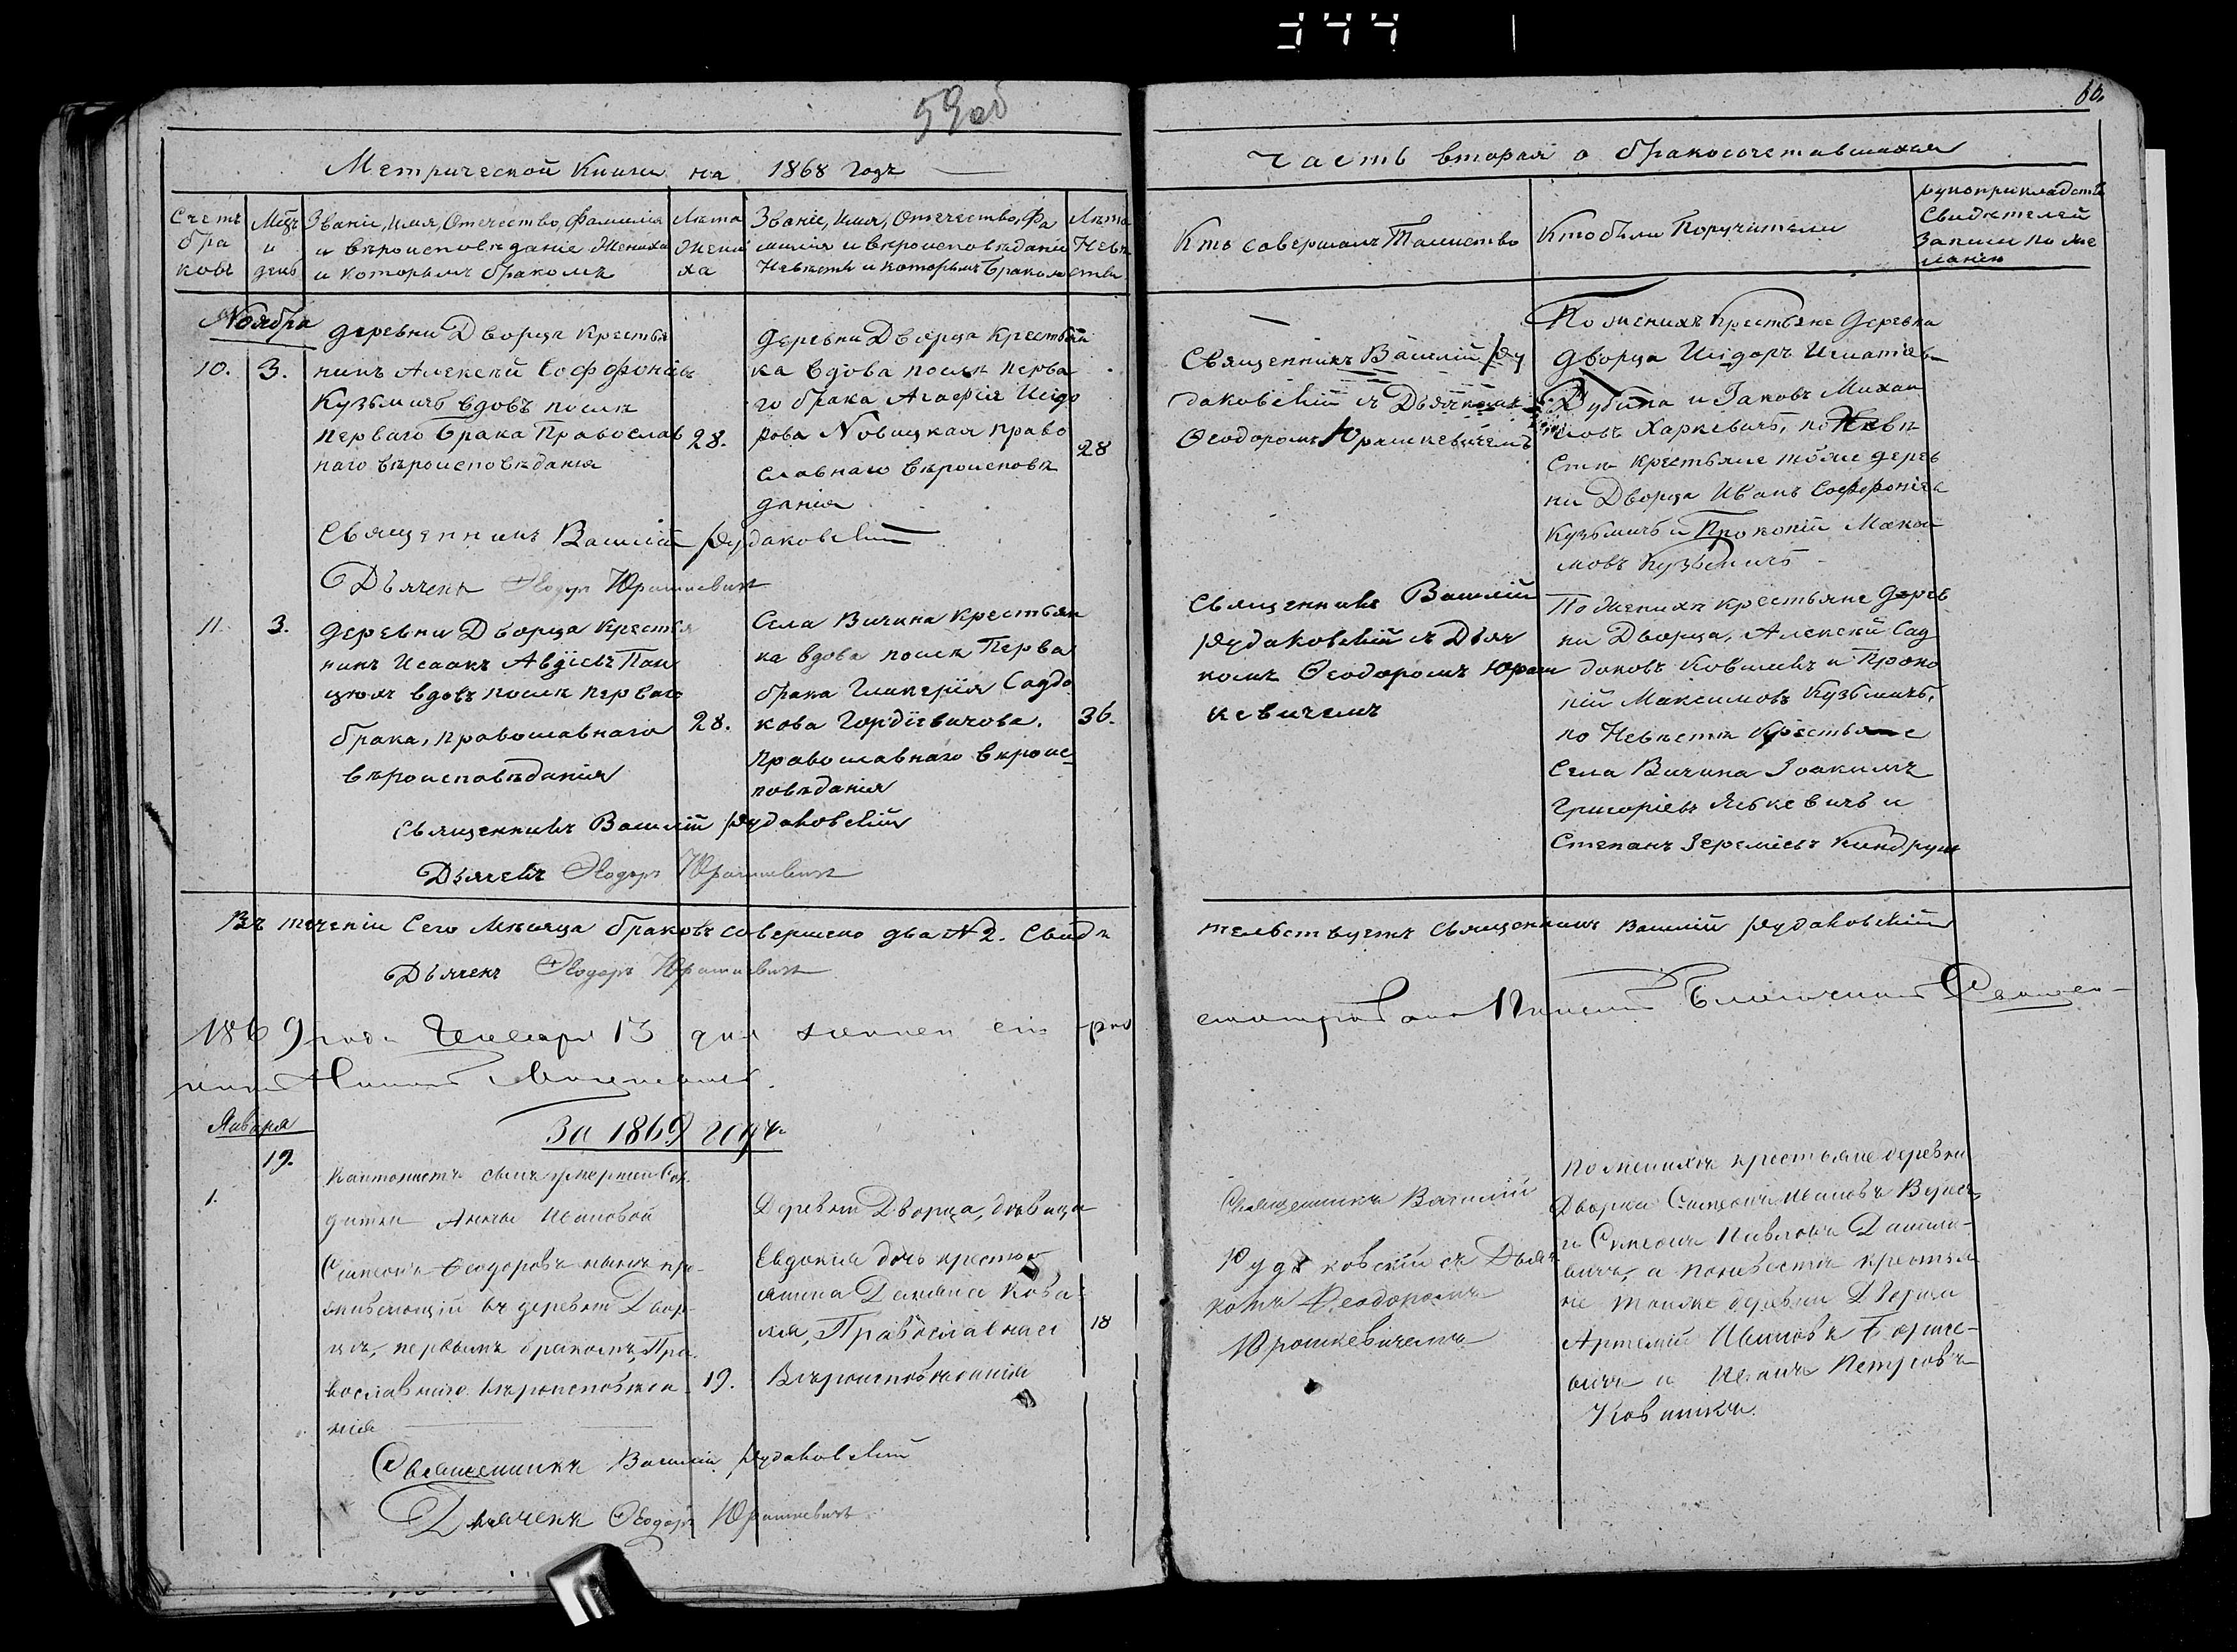 344
59об
60.
Метрической Книги на 1868 годъ
Часть вторая о бракосочетавшихся
Счетъ
бра
ковъ
Мцъ
и
день
Званіе, имя, Отечество, фамилія
и вѣроисповѣданіе Жениха
и которымъ бракомъ
Лѣта
Жени
ха
Званіе, имя, Отечество, Фа
милія и вѣроисповѣданіе
Невѣсты и которымъ бракомъ
Лѣта
Невѣ
сты
Кто совершалъ Таинство
Кто были Поручители
рукоприкладств
Свидѣтелей
записи по же
ланію
Ноября
10.
3.
деревни Дворца Крестья
нинъ Алексѣй Софроніевъ
Кузьмичъ вдовъ послѣ
перваго брака Православ
наго вѣроисповѣданія
28.
деревни Дворца Крестьян
ка вдова послѣ перва
го брака Агафія Исідо
рова Новицкая право
славнаго вѣроисповѣ
данія
28
Священникъ Василій Ру
даковскій съ Дьячкомъ
Ѳеодоромъ Юрашкевичемъ
По женихѣ Крестьяне деревни
Дворца Исідоръ Игнатіев
Дубина и Іаковъ Михаи
ловъ Харкевичъ, по Невѣ
стѣ крестьяне тойже дерев
ни Дворца Иванъ Софроніев
Кузьмичъ и Прокопій Макси
мовъ Кузьмичъ
Священникъ Василій Рудаковскій
Дьячекъ Ѳеодоръ Юрашкевичъ
11.
3.
деревни Дворца Крестья
нинъ Исаакъ Авдіевъ Пан
цюхъ вдовъ послѣ перваго
брака, православнаго
вѣроисповѣданія
28.
Села Вичина Крестьян
ка вдова послѣ Перва
брака Гликерія Садо
кова Гордіевичова.
православнаго вѣроис
повѣданія
36.
Священникъ Василій
Рудаковскій съ Дьяч
комъ Ѳеодоромъ Юраш
кевичемъ
По Женихѣ крестьяне дерев
ни Дворца, Алексѣй Сад
доковъ Ковшикъ и Проко
пій Максимовъ Кузьмичъ,
по Невѣстѣ Крестьяне
Села Вичина Іоакимъ
Григоріевъ Ясkевичъ и
Степанъ Іереміевъ Киндрук
Священникъ Василій Рудаковскій
Дьячекъ Ѳеодоръ Юрашкевичъ
Въ теченіи Сего Мѣсяца браковъ совершено два №2. Свидѣ
тельствуетъ Священникъ Василій Рудаковскій
Дьячекъ Ѳеодоръ Юрашкевичъ
1869 года Генваря 13 дня
За 1869 годъ.
Января
1.
19.
Кантонистъ сынъ умершей Сол
датки Анны Ивановой
Симеонъ Ѳеодоровъ нынѣ про-
живающій въ деревнѣ Двор-
цѣ, первымъ бракомъ, Пра
вославнаго вѣроисповѣда
нія
19.
Деревни Дворца, дѣвица
Евдокія дочь крестья
нина Даміана Кова-
ля, Православнаго
Вѣроисповѣданія
18
Священникъ Василій
Рудаковскій съ Дьяч
комъ Ѳеодоромъ
Юрашкевичемъ
По женихѣ крестьяне деревни
Дворца Симеонъ Ивановъ
и Симеонъ Павловъ Данило-
вичъ, а по невѣстѣ крестья
не тойже деревни Дворца
Артемій Ивановъ
и Иванъ Петровъ
Ковшикъ.
Священникъ Василій Рудаковскій
Дьячекъ Ѳеодоръ Юрашкевичъ